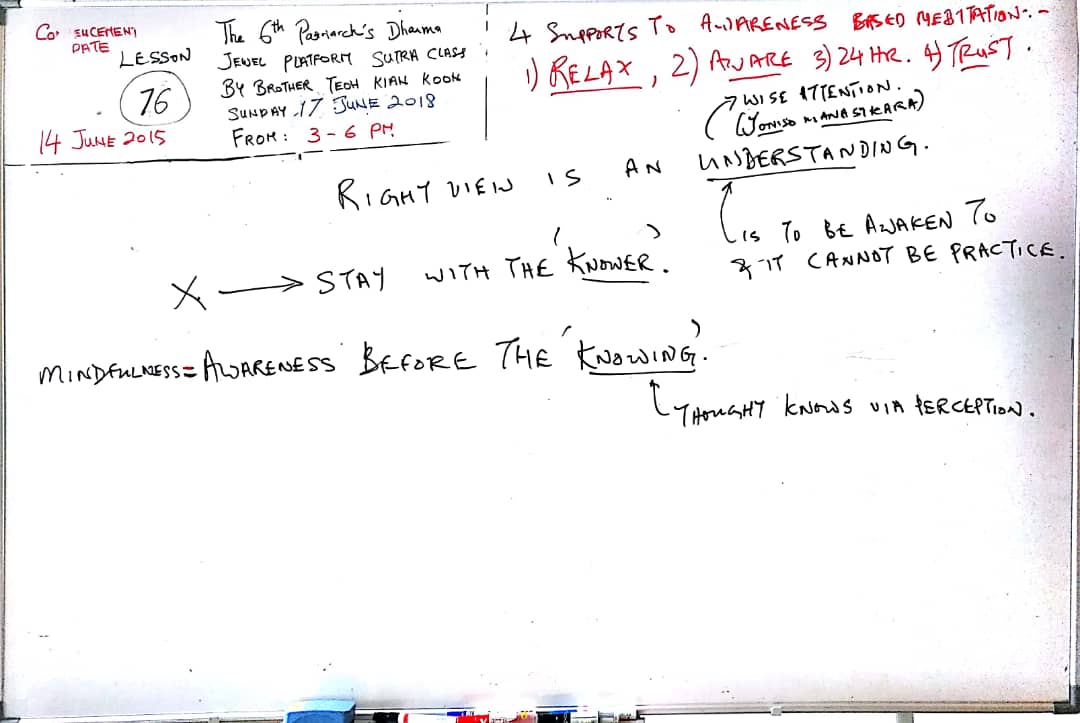 Co  ENCEMENT
DATE
LESSON
76
14 JUNE 2015
The 6th Patriarch's Dharma
JEWEL PLATFORM SUTRA CLASS
BY BROTHER TEOH KIAN KOON
SUNDAY -17 JUNE 2018
FROM: 3-6 PM
4 SUPPORTS TO AWARENESS BASED MEDITATION:-
1) RELAX, 2) AWARE 3) 24 HR. 4) TRUST.
WISE ATTENTION.
(YONISO MANASIKARA)
RIGHT VIEW IS AN UNDERSTANDING.
IS TO BE AWAKEN TO
& IT CANNOT BE PRACTICE.
X → STAY WITH THE 'KNOWER'.
MINDFULNESS = AWARENESS BEFORE THE 'KNOWING'.
THOUGHT KNOWS VIA PERCEPTION.